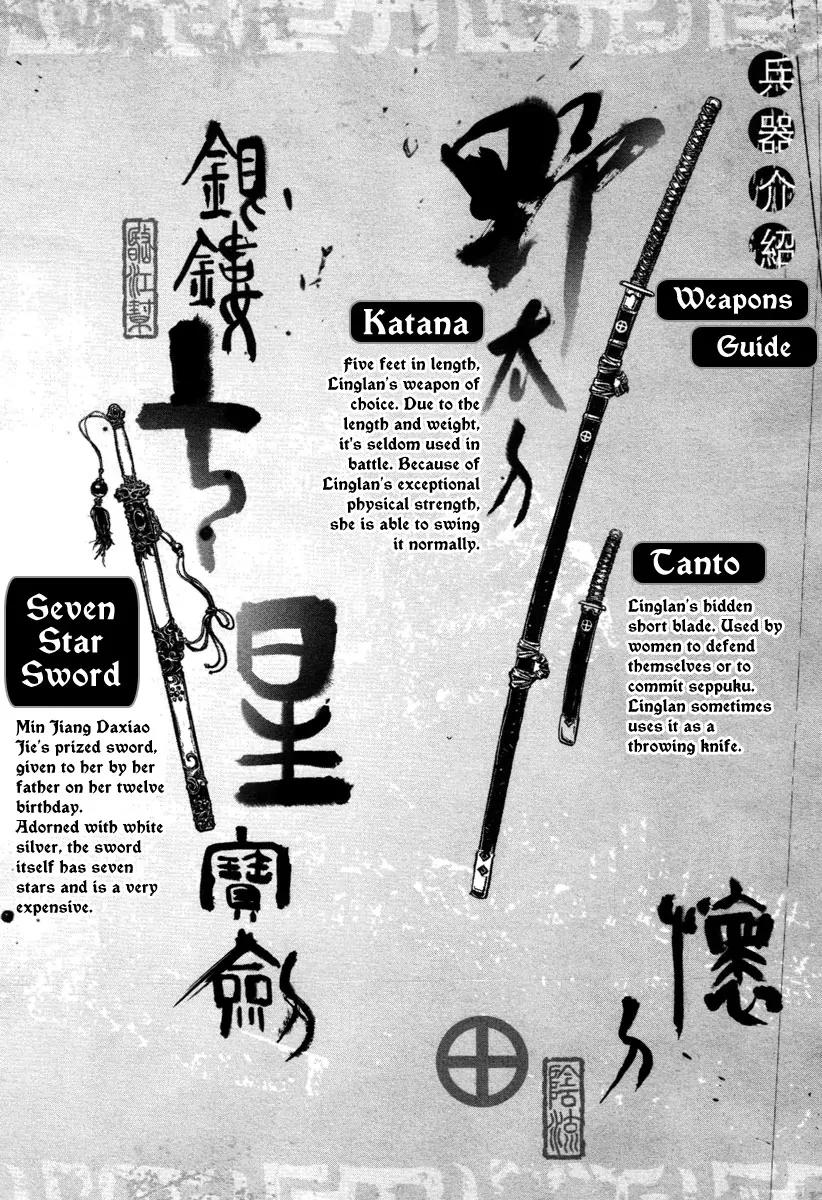 兵
器
介
紹
Weapons
Guide
野
太
刀
Katana
Five feet in length,
Linglan's weapon of
choice. Due to the
length and weight,
it's seldom used in
battle. Because of
Linglan's exceptional
physical strength,
she is able to swing
it normally.
Tanto
Linglan's hidden
short blade. Used by
women to defend
themselves or to
commit seppuku.
Linglan sometimes
uses it as a
throwing knife.
懷
刀
銀
鏤
七
星
寶
劍
臨江幫
Seven
Star
Sword
Min Jiang Daxiao
Jie's prized sword,
given to her by her
father on her twelve
birthday.
Adorned with white
silver, the sword
itself has seven
stars and is a very
expensive.
陰流